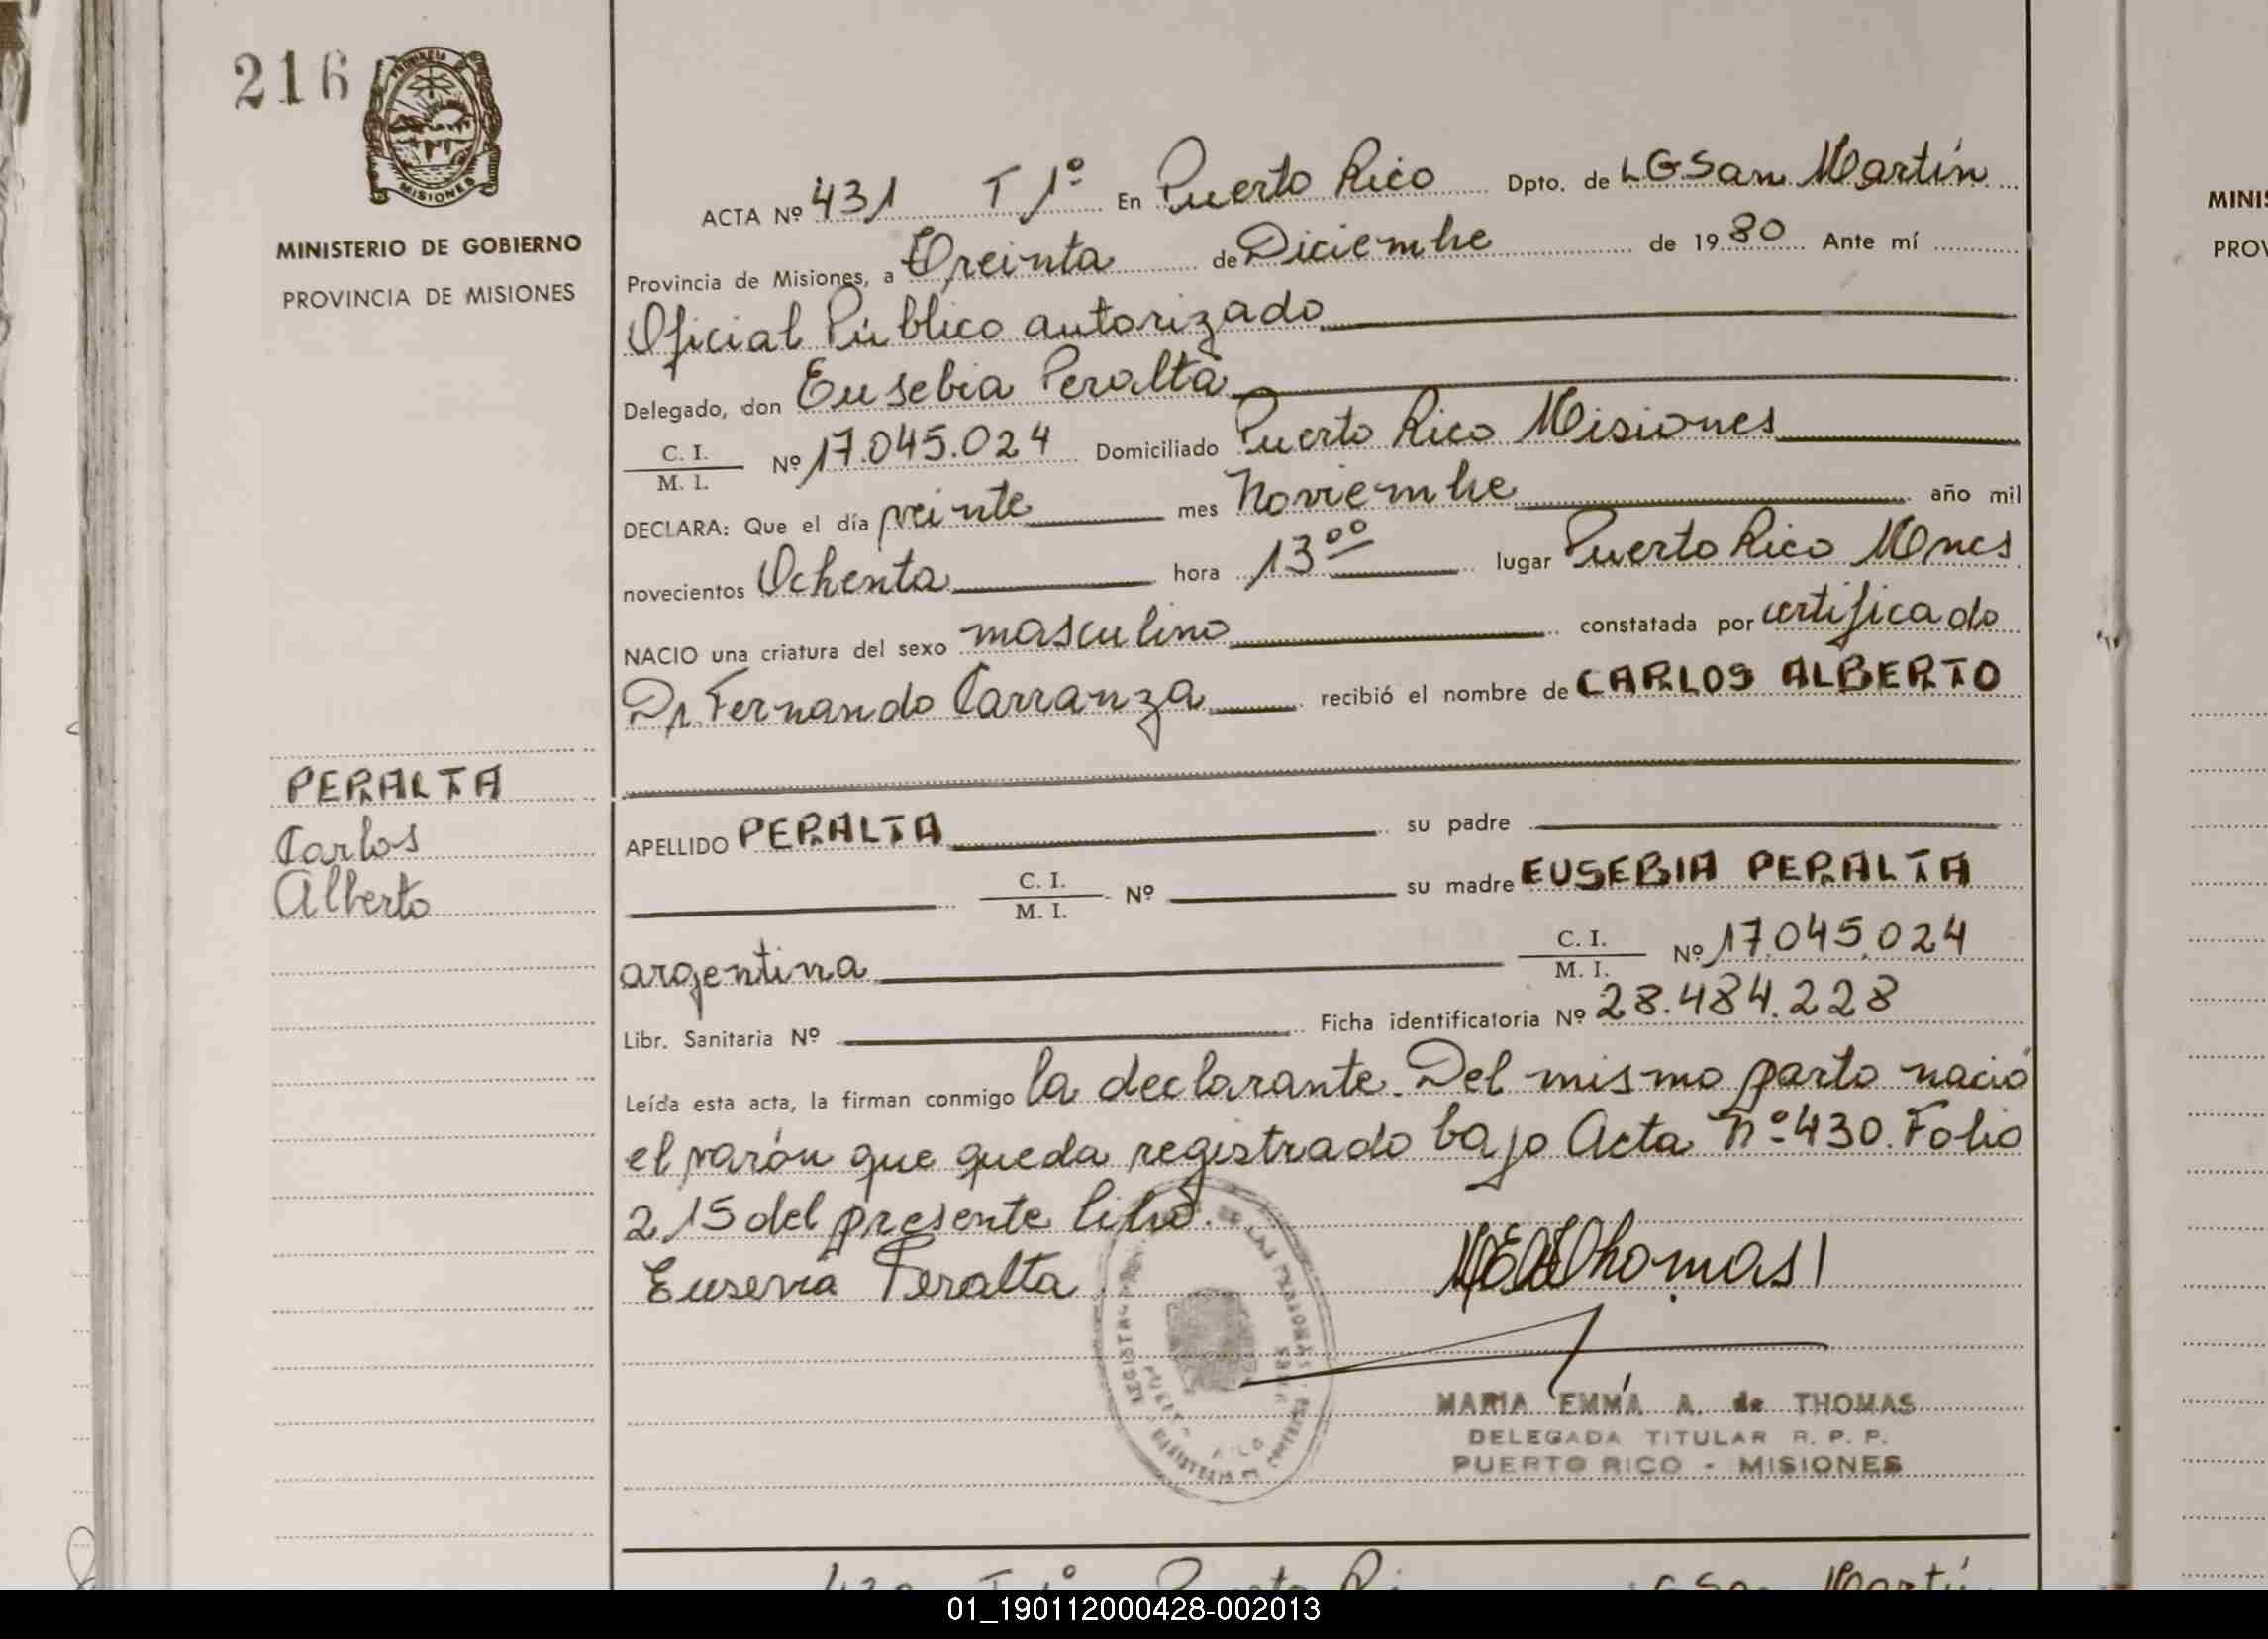 216
PROVINCIA
MISIONES
MINISTERIO DE GOBIERNO
PROVINCIA DE MISIONES
PERALTA
Carlos
Alberto
ACTA Nº 431 T 1º En Puerto Rico Dpto. de LGSan Martín
Provincia de Misiones, a Treinta de Diciembre de 19 80 Ante mí
Oficial Público autorizado
Delegado, don Eusebia Peralta
C. I.
M. I. Nº 17.045.024 Domiciliado Puerto Rico Misiones
DECLARA: Que el día veinte mes Noviembre año mil
novecientos Ochenta hora 13⁰⁰ lugar Puerto Rico Mnes
NACIO una criatura del sexo masculino constatada por certificado
Dr. Fernando Carranza recibió el nombre de CARLOS ALBERTO
APELLIDO PERALTA su padre
C. I.
M. I. Nº su madre EUSEBIA PERALTA
argentina C. I.
M. I. Nº 17.045.024
Libr. Sanitaria Nº Ficha identificatoria Nº 28.484.228
Leída esta acta, la firman conmigo la declarante. Del mismo parto nació
el varón que queda registrado bajo Acta Nº 430. Folio
215 del presente libro.
Eusevia Peralta
MARIA EMMA A. de THOMAS
DELEGADA TITULAR R. P. P.
PUERTO RICO - MISIONES
MINIS
PROV
01_190112000428-002013